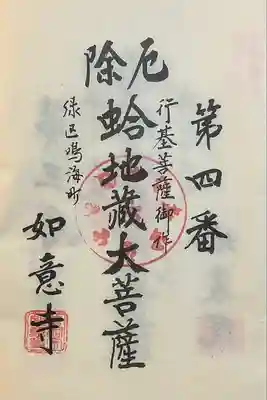 第四番
厄除
行基菩薩御作
蛤地蔵大菩薩
緑区鳴海町
如意寺